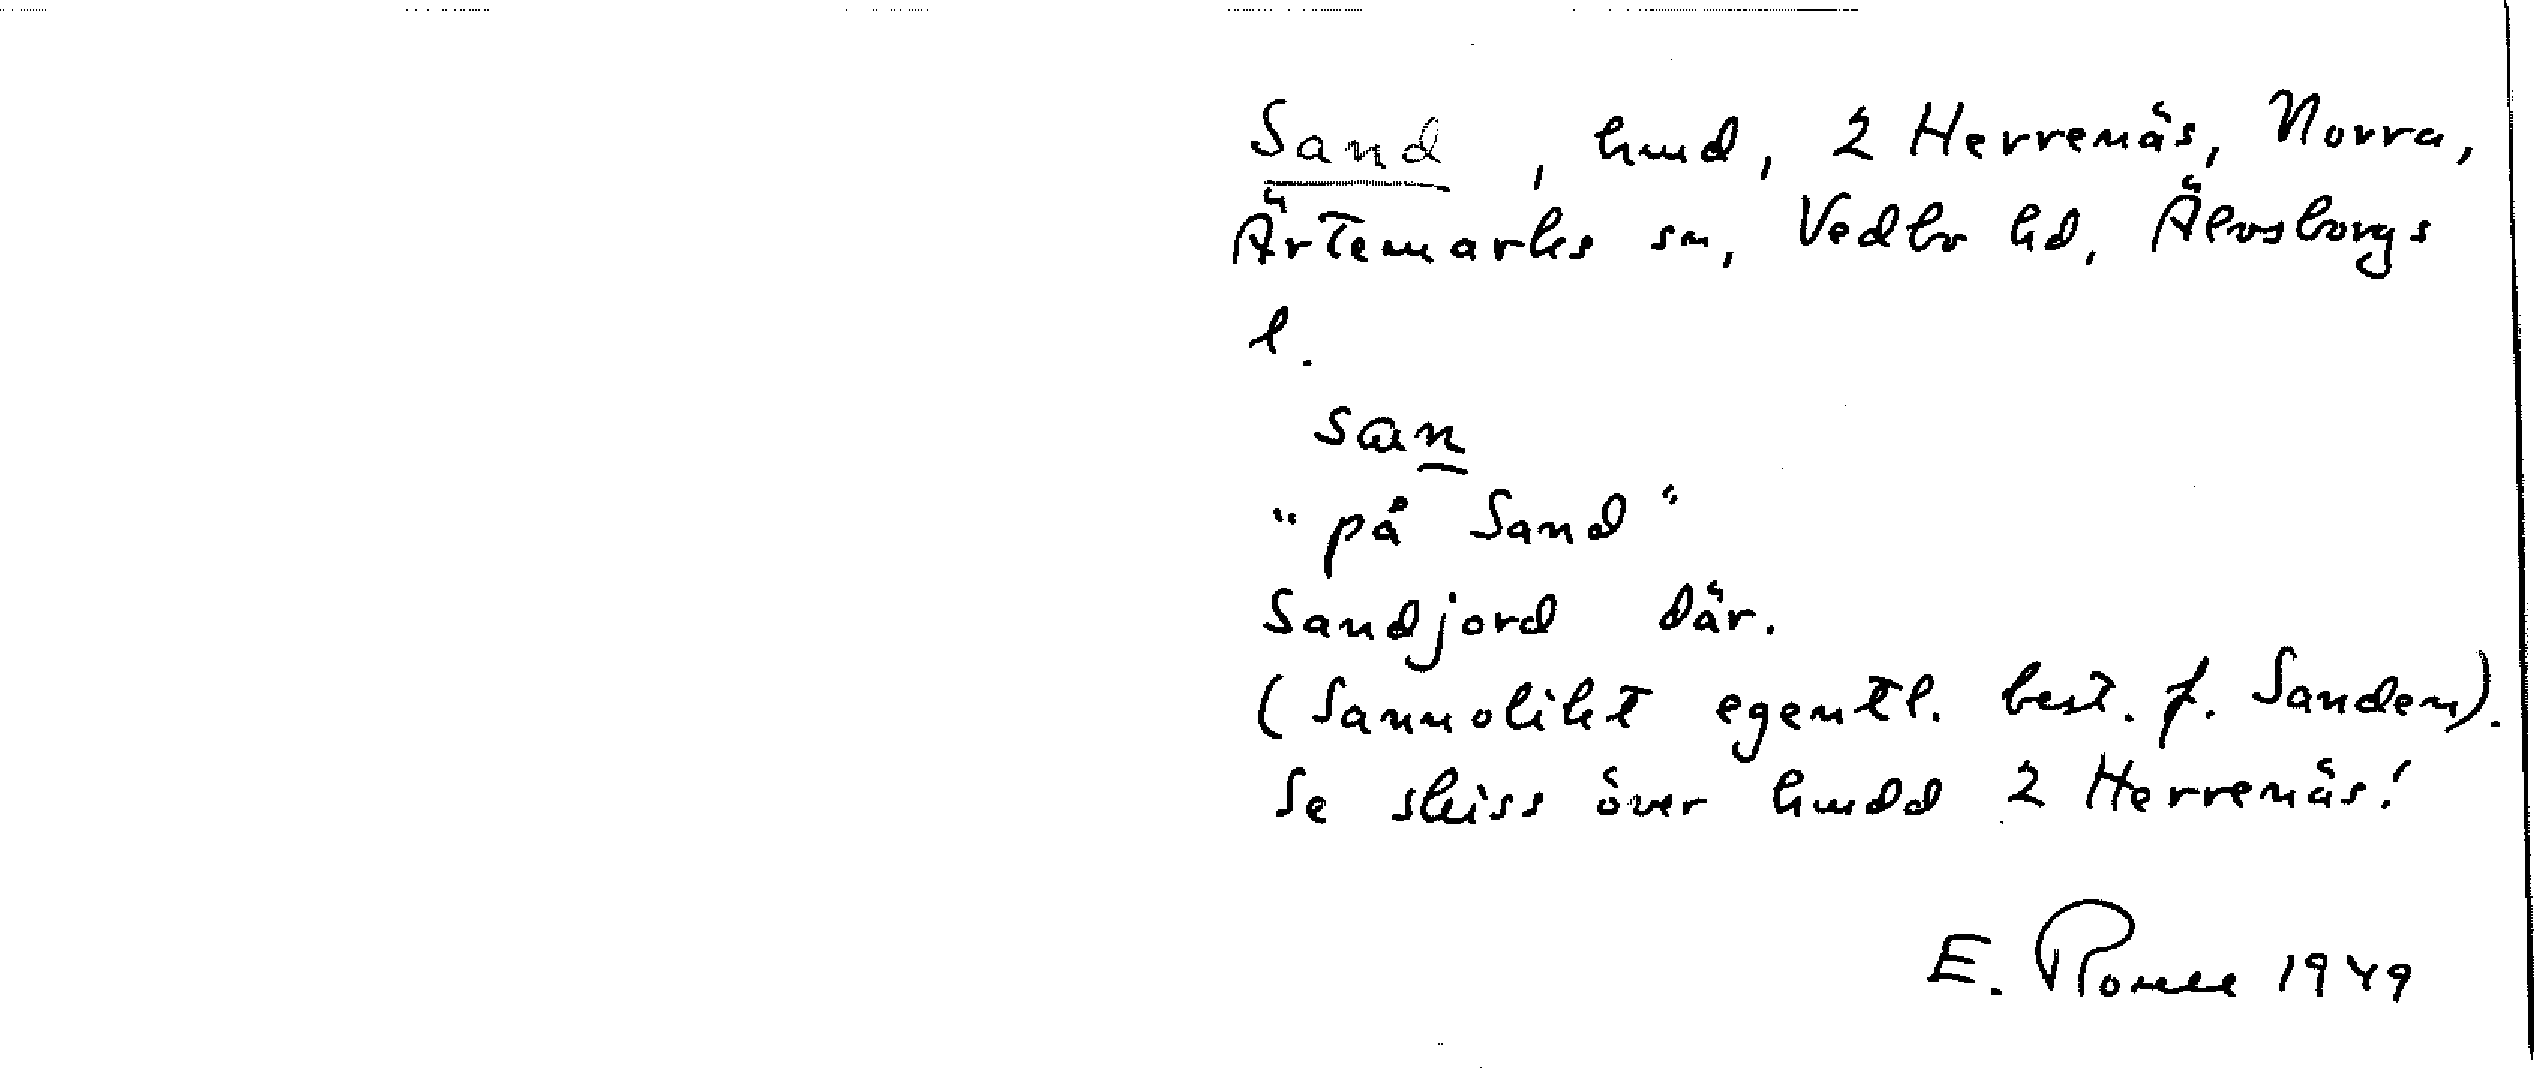 Sand, hmd, 2 Herrenäs, Norra,
Ärtemarks sn, Vedbo hd, Älvsborgs
l.
san
"på Sand"
Sandjord där.
(Sannolikt egentl. best. f. Sanden).
Se skiss över hmdd 2 Herrenäs!
E. 1949